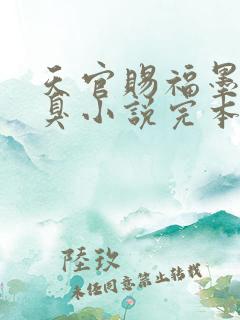 天官赐福墨
真小说完本
陸玖
未经同意禁止转载